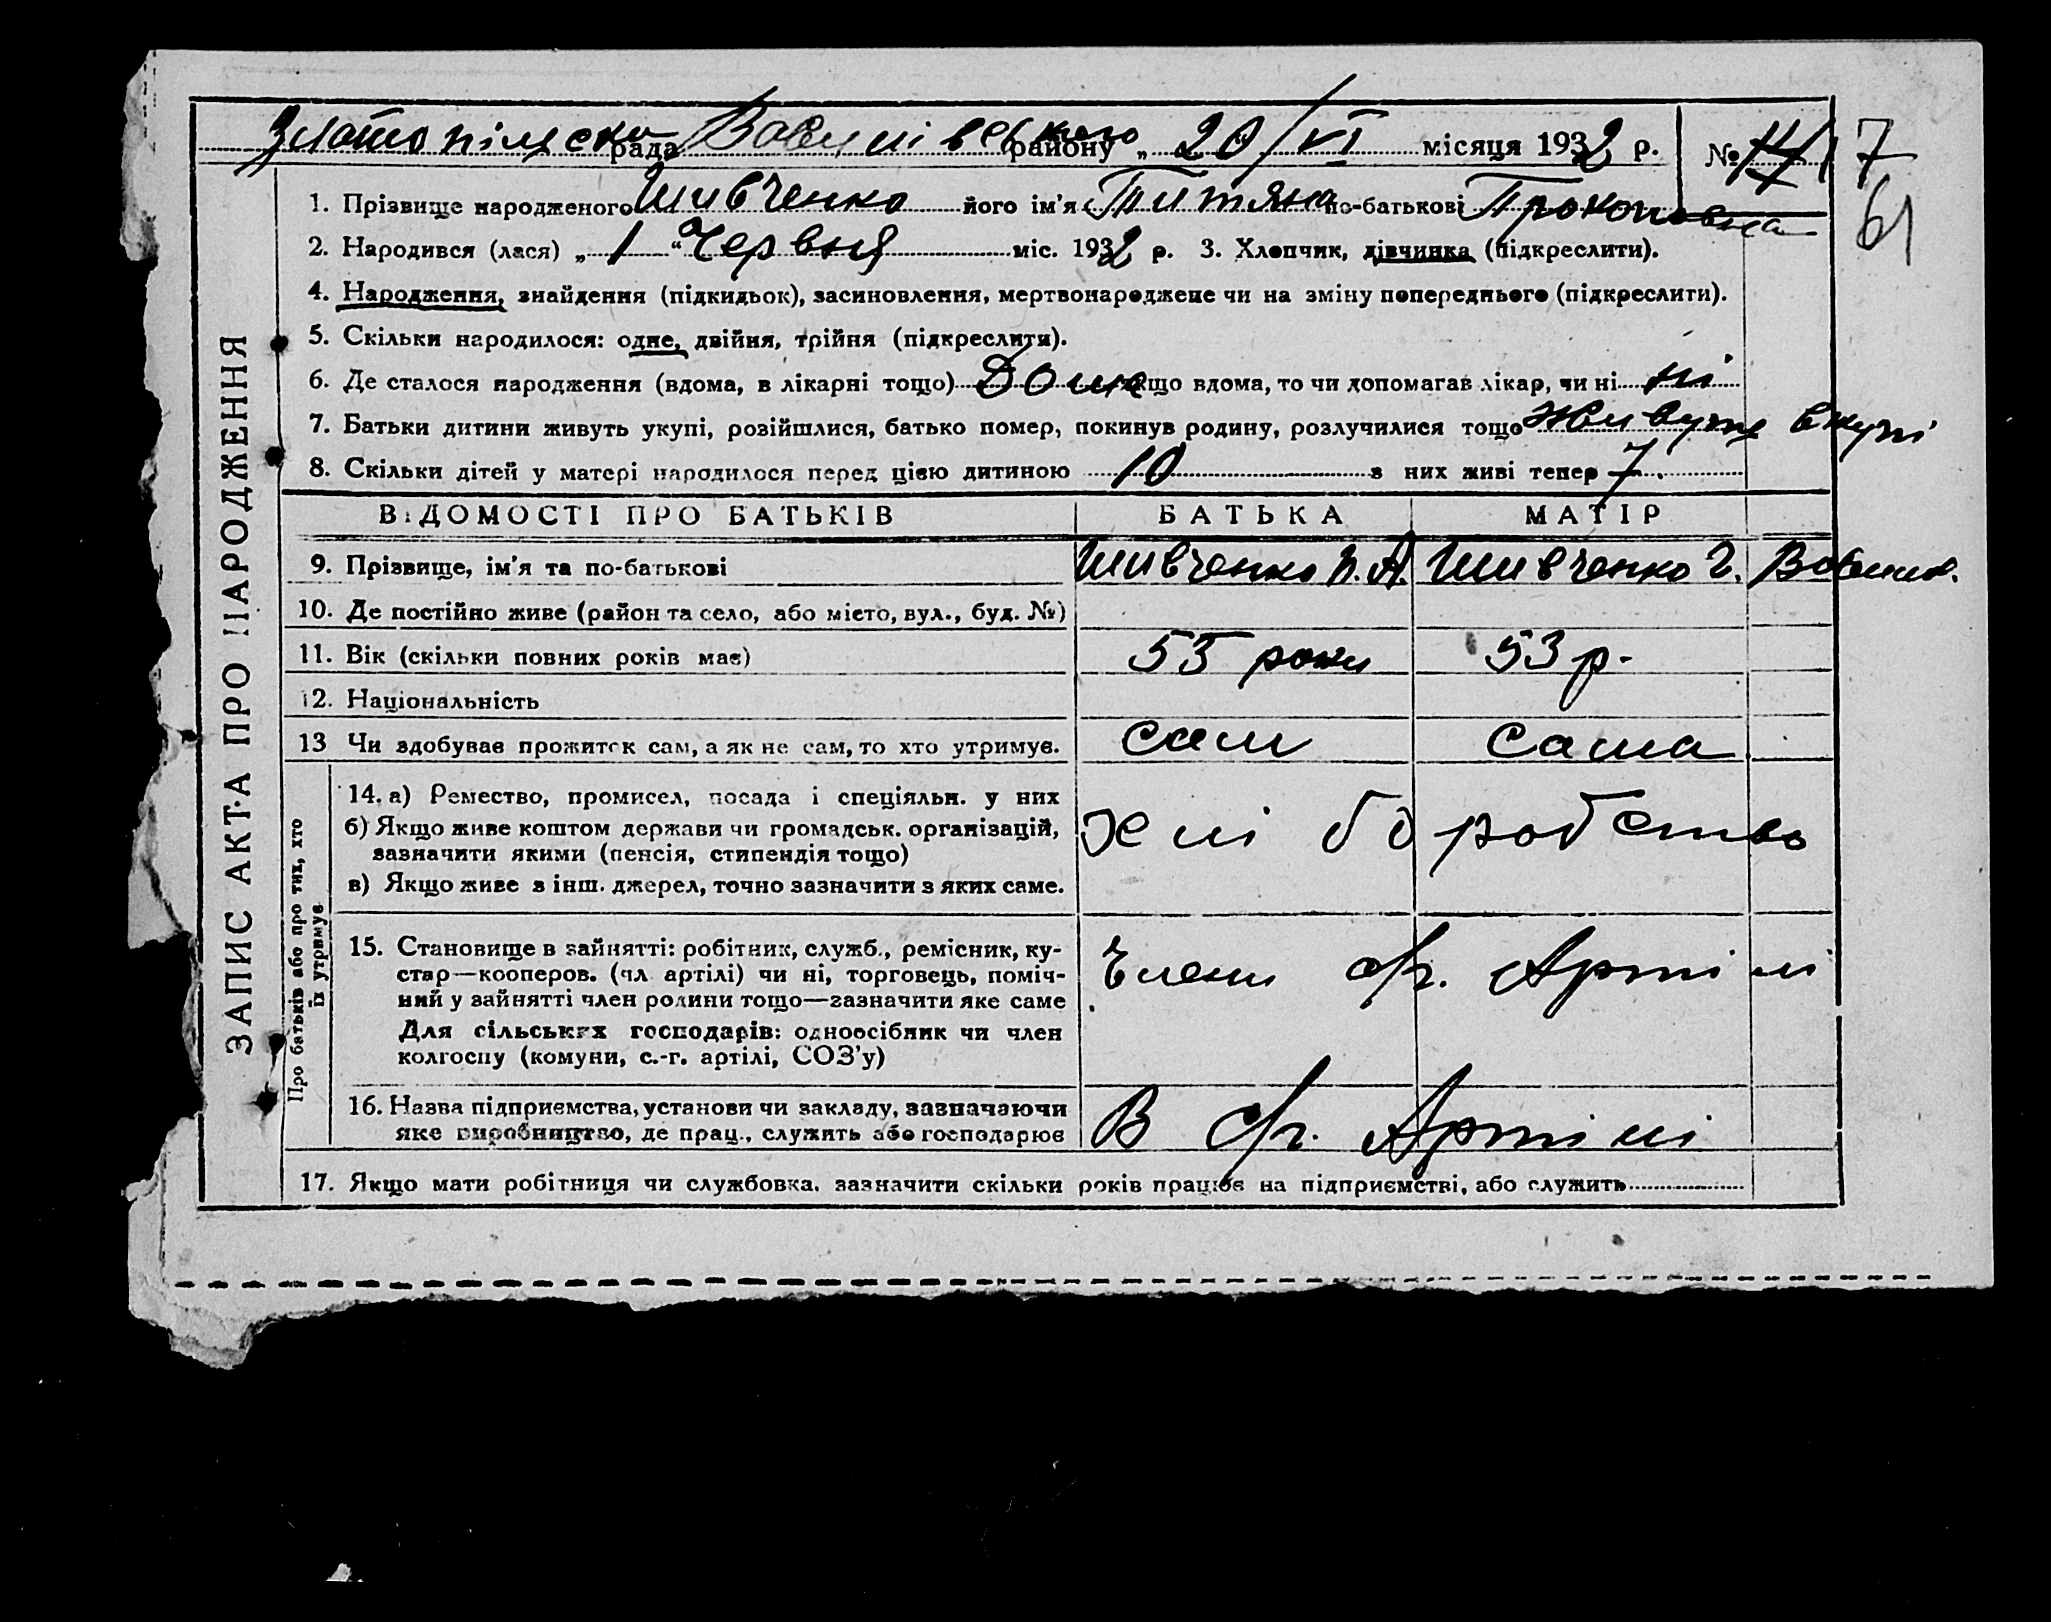 Златопільска рада района „ 20/VI місяця 1932 р. № 14 7
61
1. Прізвище народженого Шивченко його ім'я Титяна по-батькові Прокоповна
2. Народився (лася) „ 1 “ Червня міс. 1932 р. 3. Хлопчик, дівчинка (підкреслити).
4. Народження, знайдення (підкидьок), засиновлення, мертвонароджене чи на зміну попереднього (підкреслити).
5. Скільки народилося: одне, двійня, трійня (підкреслити).
6. Де сталося народження (вдома, в лікарні тощо) Дома якщо вдома, то чи допомагав лікар, чи ні ні
7. Батьки дитини живуть укупі, розійшлися, батько помер, покинув родину, розлучилися тощо Живуть вкупі
8. Скільки дітей у матері народилося перед цією дитиною 10 з них живі тепер 7.
ЗАПИС АКТА ПРО НАРОДЖЕННЯ
ВІДОМОСТІ ПРО БАТЬКІВ БАТЬКА МАТІР
9. Прізвище, ім'я та по-батькові Шивченко П. А. Шивченко Г.
10. Де постійно живе (район та село, або місто, вул., буд. №)
11. Вік (скільки повних років має) 55 роки 53 р.
12. Національність
13 Чи здобував прожиток сам, а як не сам, то хто утримує. сам сама
Про батьків або про тих, хто їх утримує
14. а) Ремество, промисел, посада і спеціяльн. у них
б) Якщо живе коштом держави чи громадськ. організацій,
зазначити якими (пенсія, стипендія тощо)
Хлібо робство
в) Якщо живе з інш. джерел, точно зазначити з яких саме.
15. Становище в зайнятті: робітник, служб., ремісник, ку-
стар—кооперов. (чл артілі) чи ні, торговець, поміч-
ний у зайнятті член родини тощо—зазначити яке саме
Члени с/г. Артілі
Для сільських господарів: одноосібник чи член
колгоспу (комуни, с.-г. артілі, СОЗ'у)
16. Назва підприємства, установи чи закладу, зазначаючи
яке виробництво, де прац., служить або господарює
В с/г. Артілі
17. Якщо мати робітниця чи службовка, зазначити скільки років працює на підприємстві, або служить